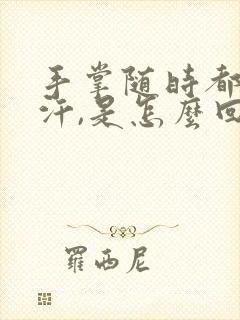 手掌随時都
汗,是怎麽回
羅西尼